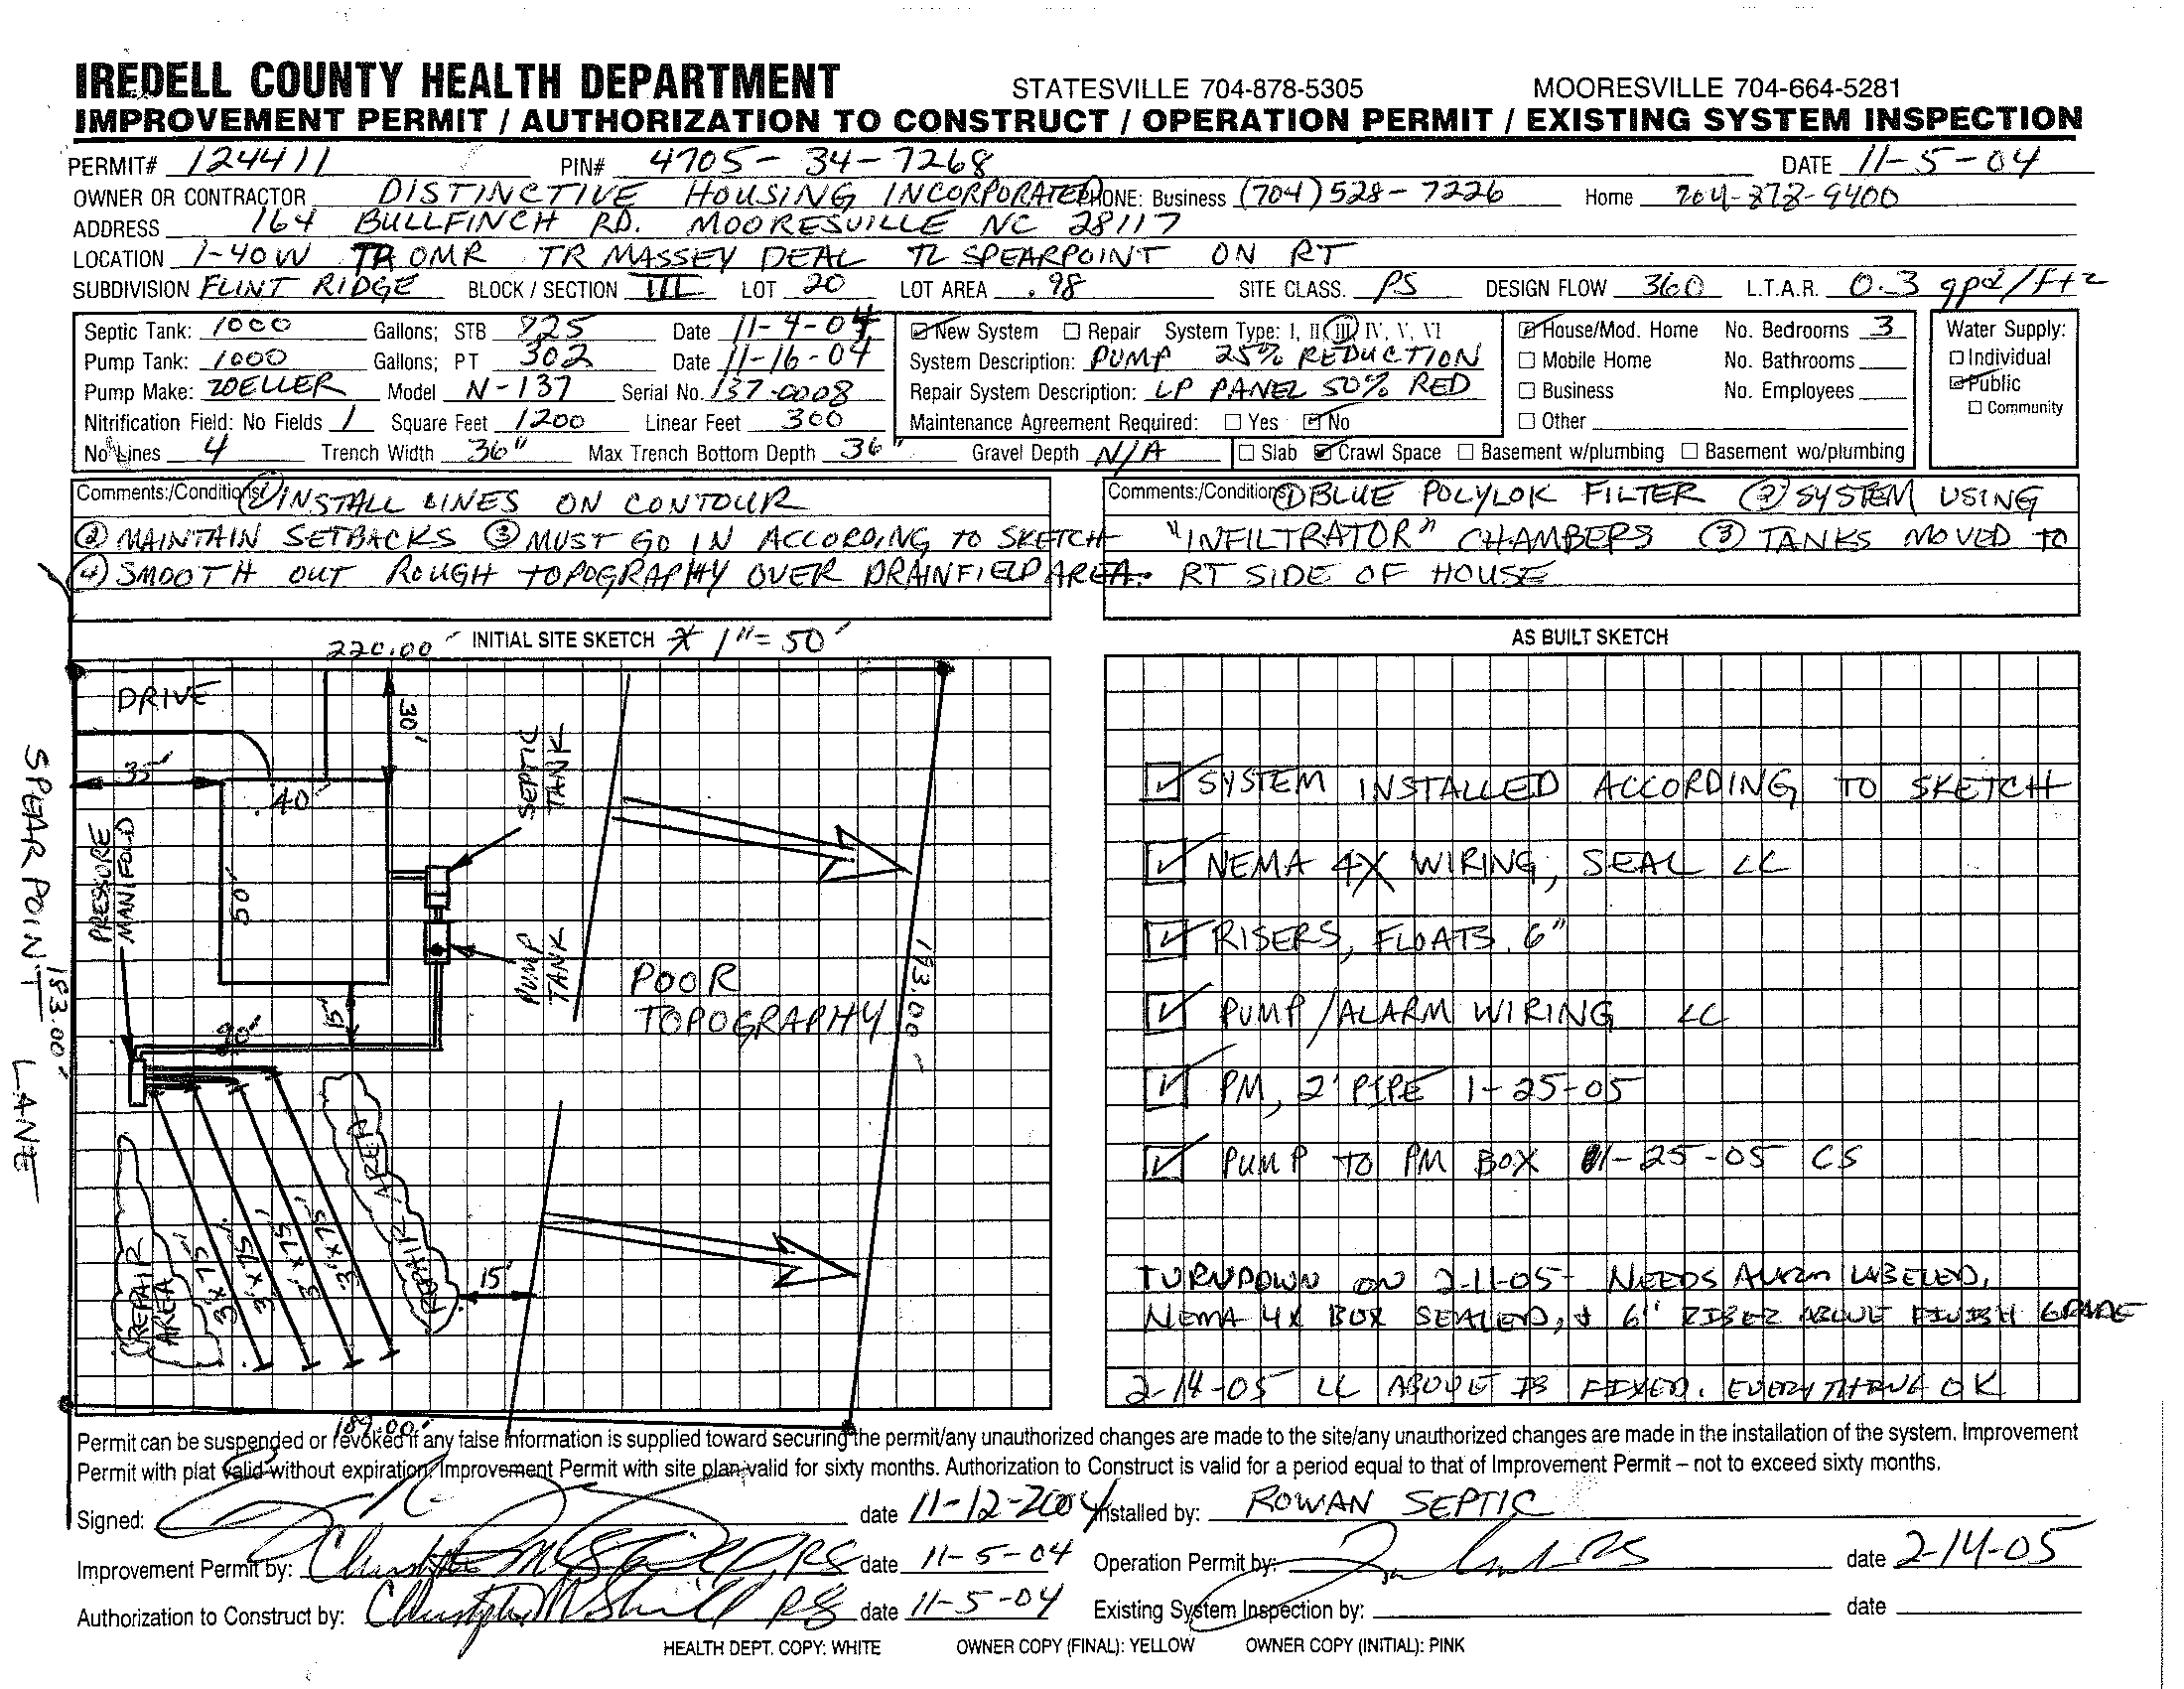 IREDELL COUNTY HEALTH DEPARTMENT STATESVILLE 704-878-5305 MOORESVILLE 704-664-5281
IMPROVEMENT PERMIT / AUTHORIZATION TO CONSTRUCT / OPERATION PERMIT / EXISTING SYSTEM INSPECTION
PERMIT# 124411 PIN# 4705-34-7268 DATE 11-5-04
OWNER OR CONTRACTOR DISTINCTIVE HOUSING INCORPORATED PHONE: Business (704) 528-7226 Home 704-878-9400
ADDRESS 164 BULLFINCH RD. MOORESVILLE NC 28117
LOCATION I-40W TR OMR TR MASSEY DEAL TL SPEARPOINT ON RT
SUBDIVISION FLINT RIDGE BLOCK / SECTION III LOT 20 LOT AREA .98 SITE CLASS. PS DESIGN FLOW 360 L.T.A.R. 0.3 gpd/ft2
Septic Tank: 1000 Gallons; STB 925 Date 11-4-04 New System Repair System Type: I, II, III, IV, V, VI House/Mod. Home No. Bedrooms 3 Water Supply:
Pump Tank: 1000 Gallons; PT 302 Date 11-16-04 System Description: PUMP 25% REDUCTION Mobile Home No. Bathrooms Individual
Pump Make: ZOELLER Model N-137 Serial No. 137-0008 Repair System Description: LP PANEL 50% RED Business No. Employees Public
Nitrification Field: No Fields 1 Square Feet 1200 Linear Feet 300 Maintenance Agreement Required: Yes No Other Community
No Lines 4 Trench Width 36" Max Trench Bottom Depth 36" Gravel Depth N/A Slab Crawl Space Basement w/plumbing Basement wo/plumbing
Comments:/Conditions: ① INSTALL LINES ON CONTOUR
② MAINTAIN SETBACKS ③ MUST GO IN ACCORDING TO SKETCH
④ SMOOTH OUT ROUGH TOPOGRAPHY OVER DRAINFIELD AREA.
Comments:/Conditions ① BLUE POLYLOK FILTER ② SYSTEM USING
"INFILTRATOR" CHAMBERS ③ TANKS MOVED TO
RT SIDE OF HOUSE
220.00' INITIAL SITE SKETCH * 1"=50'
DRIVE
30'
35'
40'
SEPTIC
TANK
PRESSURE
MANIFOLD
50'
PUMP
TANK
POOR
TOPOGRAPHY
193.00'
SPEAR POINT LANE
183.00'
15'
REPAIR AREA
REPAIR
AREA
3'x75'
3'x75'
3'x75'
3'x75'
15'
189.00'
AS BUILT SKETCH
SYSTEM INSTALLED ACCORDING TO SKETCH
NEMA 4X WIRING, SEAL LC
RISERS, FLOATS 6"
PUMP/ALARM WIRING LC
PM, 2' PIPE 1-25-05
PUMP TO PM BOX 1-25-05 CS
TURNDOWN ON 2-11-05- NEEDS ALARM LABELED,
NEMA 4X BOX SEALED, & 6" RISER ABOVE FINISH GRADE
2-14-05 LC ABOVE IS FIXED. EVERYTHING OK
Permit can be suspended or revoked if any false information is supplied toward securing the permit/any unauthorized changes are made to the site/any unauthorized changes are made in the installation of the system. Improvement
Permit with plat valid without expiration. Improvement Permit with site plan valid for sixty months. Authorization to Construct is valid for a period equal to that of Improvement Permit – not to exceed sixty months.
Signed: date 11-12-2004 Installed by: ROWAN SEPTIC
Improvement Permit by: RS date 11-5-04 Operation Permit by: RS date 2-14-05
Authorization to Construct by: RS date 11-5-04 Existing System Inspection by: date
HEALTH DEPT. COPY: WHITE OWNER COPY (FINAL): YELLOW OWNER COPY (INITIAL): PINK